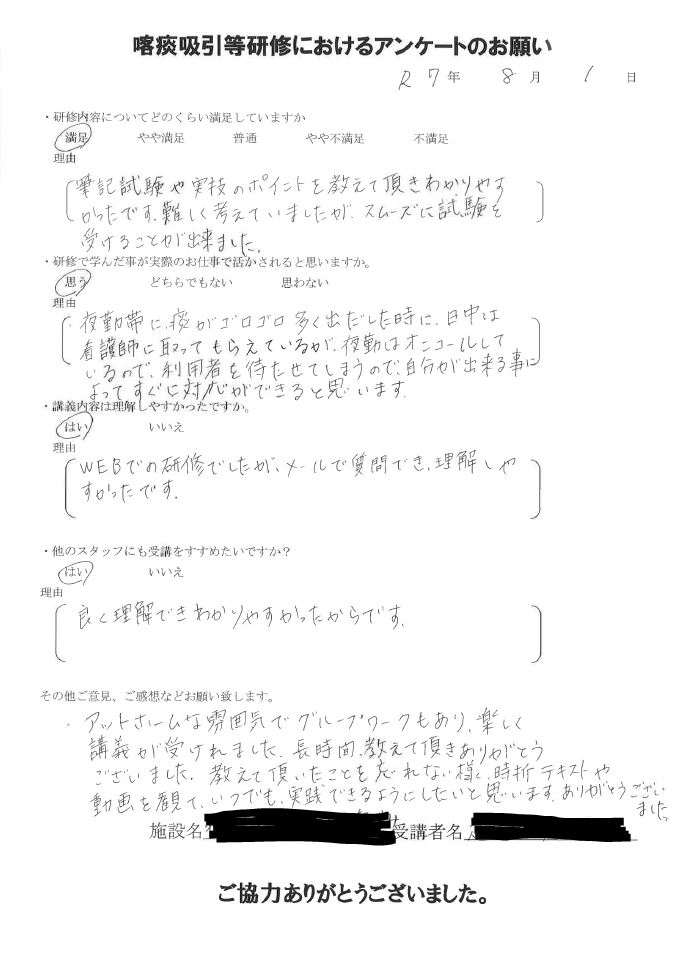 喀痰吸引等研修におけるアンケートのお願い
R 7 年 8 月 1 日
・研修内容についてどのくらい満足していますか
満足 やや満足 普通 やや不満足 不満足
理由
筆記試験や実技のポイントを教えて頂きわかりやす
かったです。難しく考えていましたが、スムーズに試験を
受けることが出来ました。
・研修で学んだ事が実際のお仕事で活かされると思いますか。
思う どちらでもない 思わない
理由
・夜勤帯に、痰がゴロゴロ多く出だした時に、日中は
看護師に取ってもらえているが、夜勤はオンコールして
いるので、利用者を待たせてしまうので、自分が出来る事に
よってすぐに対応ができると思います。
・講義内容は理解しやすかったですか。
はい いいえ
理由
WEBでの研修でしたが、メールで質問でき、理解しや
すかったです。
・他のスタッフにも受講をすすめたいですか？
はい いいえ
理由
良く理解できわかりやすかったからです。
その他ご意見、ご感想などお願い致します。
・アットホームな雰囲気でグループワークもあり、楽しく
講義が受けれました。長時間、教えて頂きありがとう
ございました。教えて頂いたことを忘れない様に、時折テキストや
動画を観て、いつでも、実践できるようにしたいと思います。ありがとうござい
ました。
施設名 受講者名
ご協力ありがとうございました。